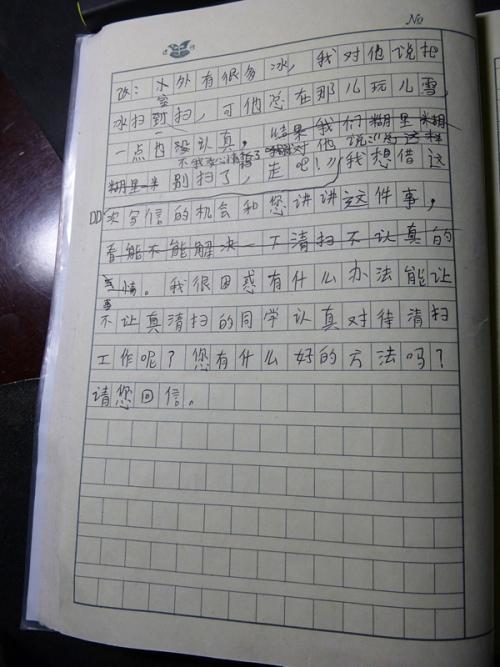 No
改：水外有很多冰，我对他说把
室
冰扫到扫，可他总在那儿玩儿雪，
一点也没认真，结果我们糊里糊
不我要心情等了 我对他说
糊里 别扫了，走吧！"我想借这
次写信的机会和您讲讲这件事，
看能不能解决一下清扫不认真的
事情。我很困惑有什么办法能让
不让真清扫的同学认真对待清扫
工作呢？您有什么好的方法吗？
请您回信。